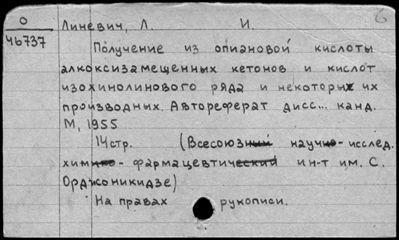 О
46737
Линевич, Л. И.
6
Получение из опиановой кислоты
алкоксизамещенных кетонов и кислот
изохинолинового ряда и некоторых их
производных. Автореферат дисс... канд.
М, 1955
14стр. (Всесоюзный научно- исслед.
химико- фармацевтический ин-т им. С.
Орджоникидзе)
На правах рукописи.